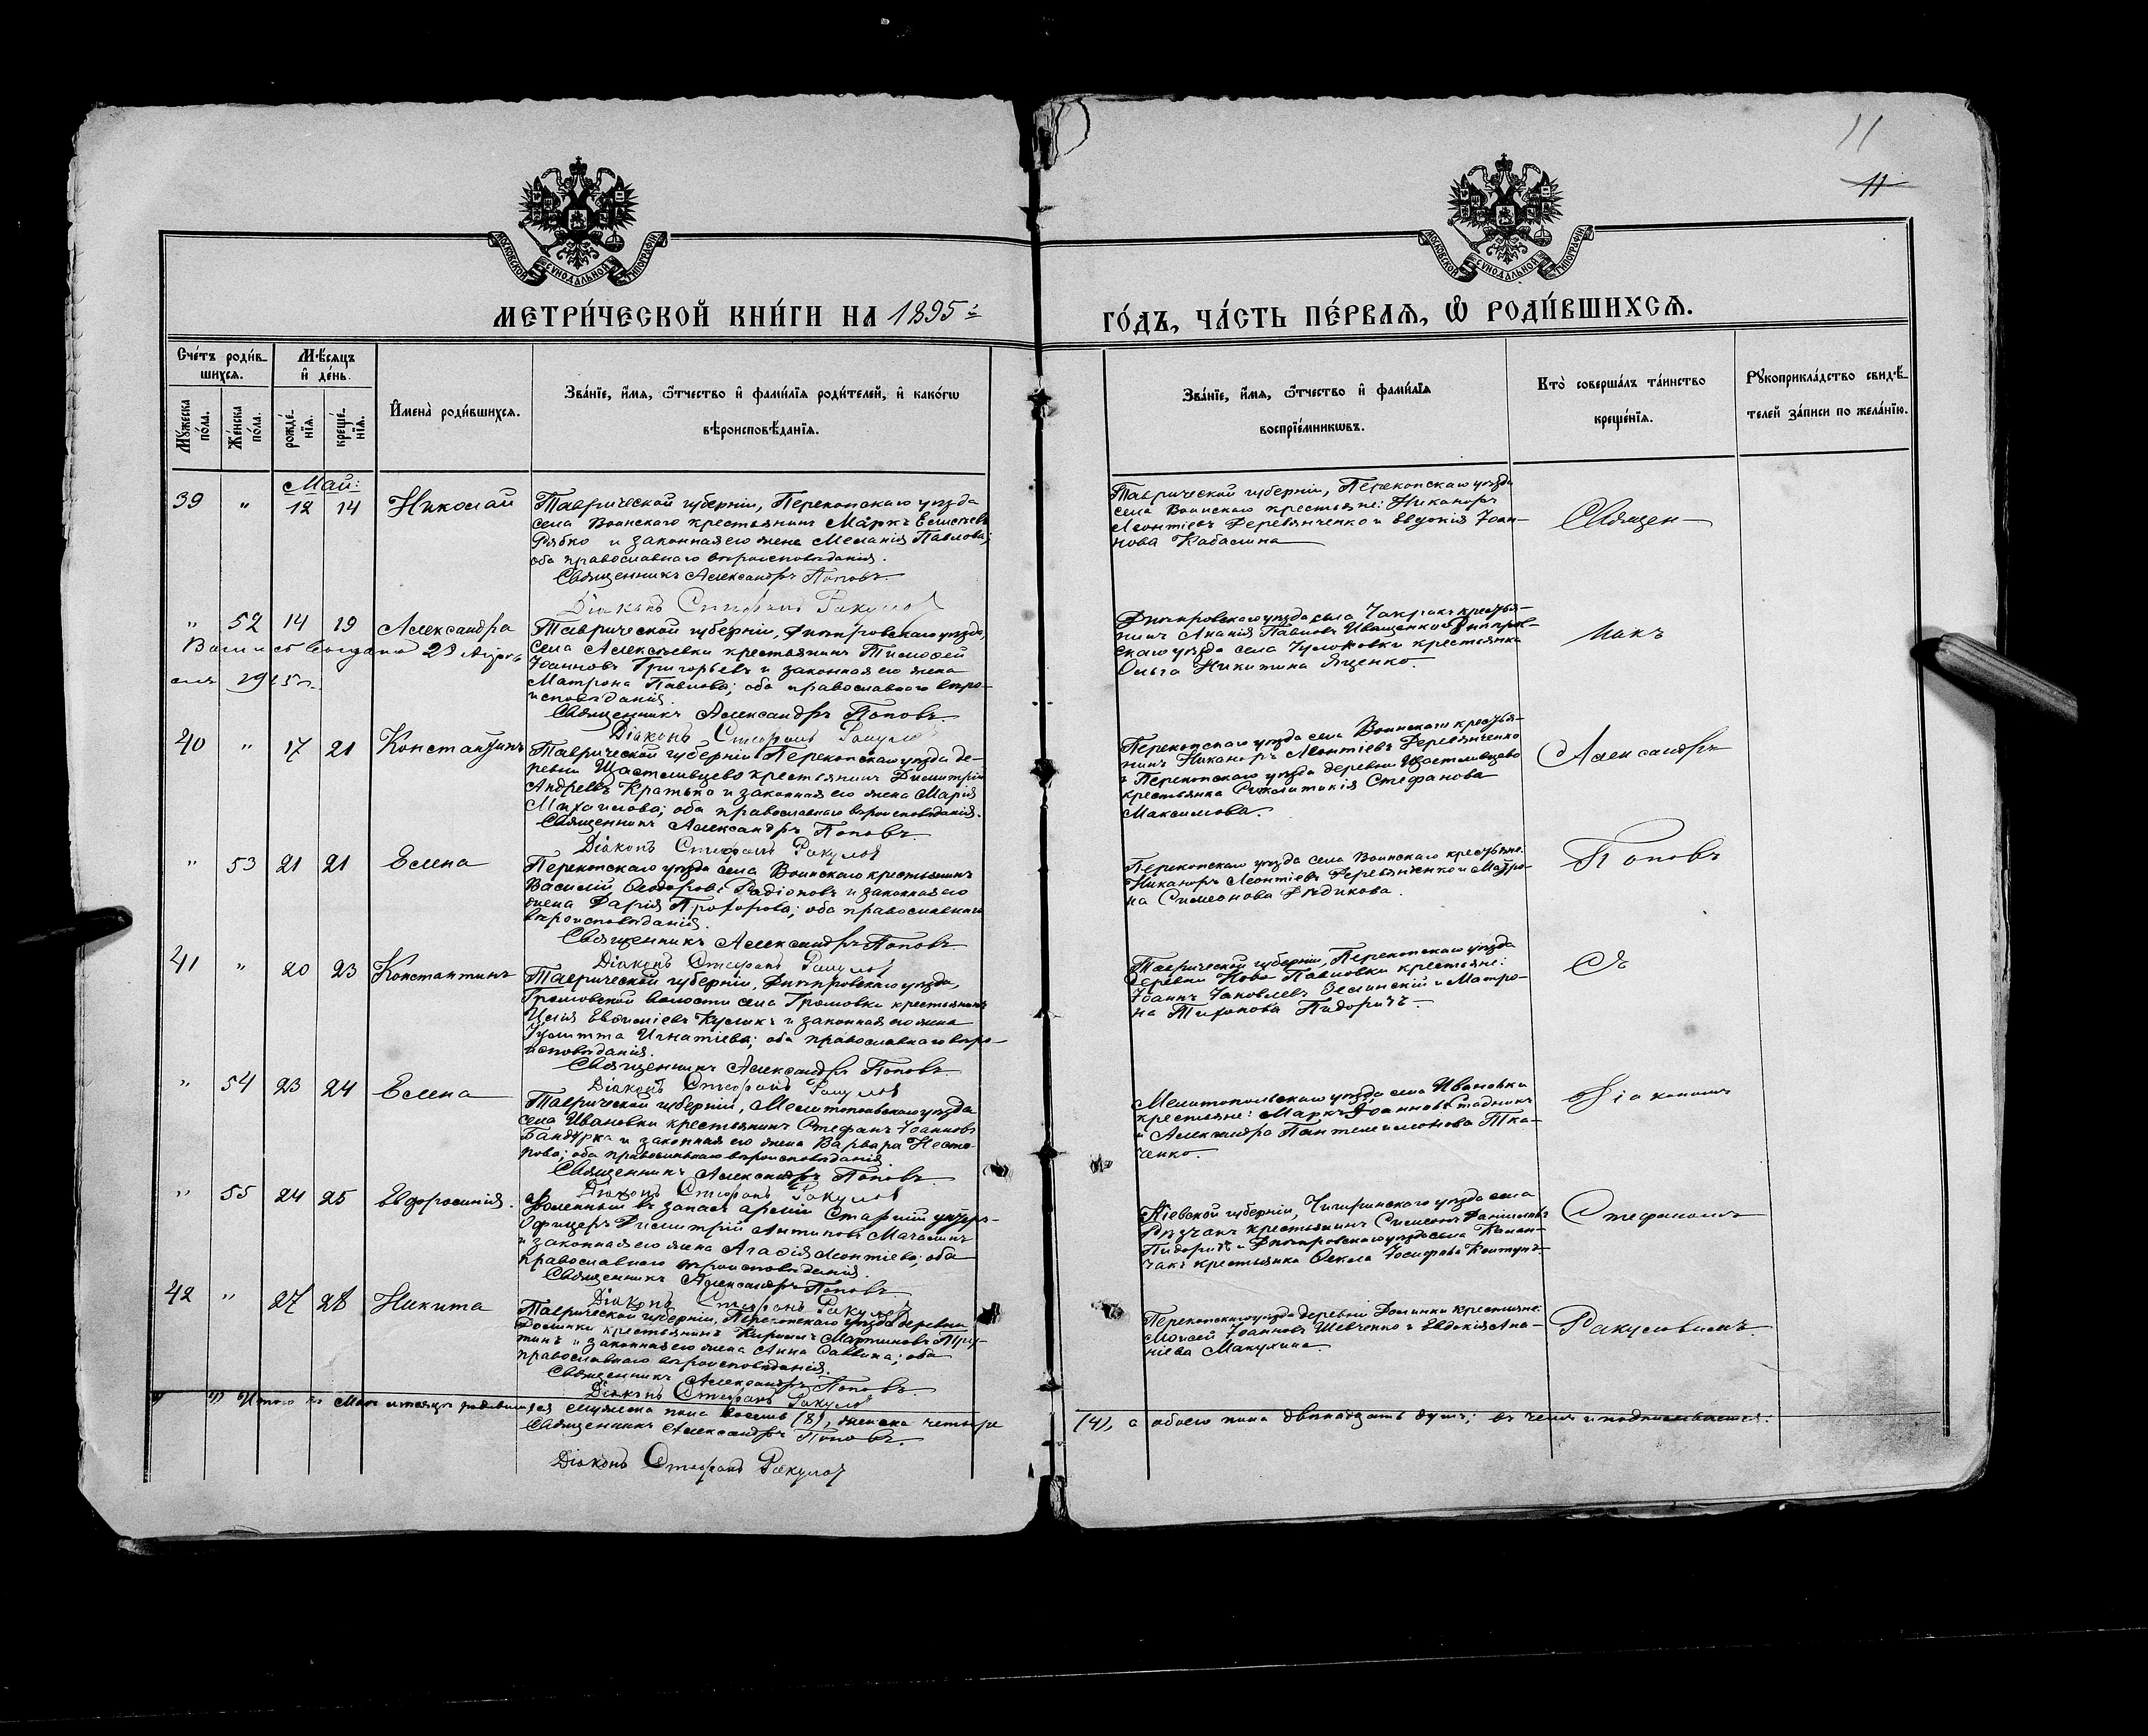 11
11
МОСКОВСКОЙ СѴНОДАЛЬНОЙ ТИПОГРАФІИ
МОСКОВСКОЙ СѴНОДАЛЬНОЙ ТИПОГРАФІИ
МЕТРИ́ЧЕСКОЙ КНИ́ГИ НА 1895 й
ГО́ДЪ, ЧА́СТЬ ПЕ́РВАѦ, Ѡ҆ РОДИ́ВШИХСѦ.
Сче́тъ роди́в-
шихсѧ.
Мѣ́сѧцъ
и҆ де́нь.
Мꙋ́жеска
по́ла.
Же́нска
по́ла.
рожде́-
нїѧ.
креще́-
нїѧ.
И҆мена̀ роди́вшихсѧ.
Зва́нїе, и҆́мѧ, ѻ҆́тчество и҆ фами́лїѧ роди́телей, и҆ како́гѡ
вѣроисповѣ́данїѧ.
Зва́нїе, и҆́мѧ, ѻ҆́тчество и҆ фами́лїѧ
воспрїе́мникѡвъ.
Кто̀ соверша́лъ та́инство
креще́нїѧ.
Рꙋкоприкла́дство свидѣ́-
телей за́писи по жела́нїю.
Май:
39 " 12 14 Николай
Таврической губерніи, Перекопскаго уѣзда
села Воинскаго крестьянинъ Маркъ Елисѣевъ
Рябко и законная его жена Меланія Павлова;
оба православнаго вѣроисповѣданія.
Священникъ Александръ Поповъ.
Діаконъ Стефанъ
Таврической губерніи, Перекопскаго уѣзда
села Воинскаго крестьяне: Никаноръ
Леонтіевъ Деревянченко и Евдокія Іоан-
нова Кабалина
Священ-
" 52 14 19 Александра
29
Таврической губерніи, Днѣпровскаго уѣзда,
села Алексѣевки крестьянинъ Тимофей
Іоанновъ Григорьевъ и законная его жена
Матрона Павлова; оба православнаго вѣро-
исповѣданія.
Священникъ Александръ Поповъ.
Діаконъ Стефанъ
Днѣпровскаго уѣзда села Чакракъ крестья-
нинъ Ананія Павловъ Иващенко и Днѣпров-
скаго уѣзда села Чулаковки крестьянка
Ольга Никитина Яценко.
никъ
40 " 17 21 Константинъ
Таврической губерніи Перекопскаго уѣзда де-
ревни Щастливцево крестьянинъ Димитрій
Андреевъ Кратько и законная его жена Марія
Михаилова; оба православнаго вѣроисповѣданія.
Священникъ Александръ Поповъ.
Діаконъ Стефанъ
Перекопскаго уѣзда села Воинскаго крестья-
нинъ Никаноръ Леонтіевъ Деревянченко
и Перекопскаго уѣзда деревни Щастливцево
крестьянка Стефанова
Максимова.
Александръ
" 53 21 21 Елена
Перекопскаго уѣзда села Воинскаго крестьянинъ
Василій Ѳеодоровъ Радіоновъ и законная его
жена Дарія Прохорова; оба православнаго
вѣроисповѣданія.
Священникъ Александръ Поповъ.
Діаконъ Стефанъ
Перекопскаго уѣзда села Воинскаго крестьяне:
Никаноръ Леонтіевъ Деревянченко и Матро-
на Симеонова Дѣдикова.
Поповъ
41 " 20 23 Константинъ
Таврической губерніи, Днѣпровскаго уѣзда,
Громовской волости села Громовки крестьянинъ
Илія Евѳиміевъ Куликъ и законная его жена
Іулитта Игнатіева; оба православнаго вѣро-
исповѣданія.
Священникъ Александръ Поповъ.
Діаконъ Стефанъ
Таврической губерніи, Перекопскаго уѣзда
деревни Ново-Павловки крестьяне:
Іоаннъ Іаковлевъ Зелинскій и Матро-
на Тихонова Пидоричъ.
Съ
" 54 23 24 Елена
Таврической губерніи, Мелитопольскаго уѣзда
села Ивановки крестьянинъ Стефанъ Іоанновъ
Бандурка и законная его жена Варвара Несте-
рова; оба православнаго вѣроисповѣданія.
Священникъ Александръ Поповъ.
Діаконъ Стефанъ
Мелитопольскаго уѣзда села Ивановки
крестьяне: Маркъ Іоанновъ Стадникъ
и Александра Пантелеимонова Тка-
ченко.
Діакономъ
" 55 24 25 Евфросинія.
Уволенный въ запасъ арміи Старшій унтеръ-
офицеръ Димитрій Антиповъ Мачалинъ
и законная его жена Агафія Леонтіева; оба
православнаго вѣроисповѣданія.
Священникъ Александръ Поповъ.
Діаконъ Стефанъ
Кіевской губерніи, Чигиринскаго уѣзда села
крестьянинъ Симеонъ Даніиловъ
Пидоричъ и Днѣпровскаго уѣзда села Калан-
чакъ крестьянка Ѳекла Іосифова
Стефаномъ
42 " 27 28 Никита
Таврической губерніи, Перекопскаго уѣзда деревни
Долинки крестьянинъ Кириллъ Мартиновъ
и законная его жена Анна Саввина; оба
православнаго вѣроисповѣданія.
Священникъ Александръ Поповъ.
Діаконъ Стефанъ
Перекопскаго уѣзда деревни Долинки крестьяне:
Моисей Іоанновъ Шевченко и Евдокія Ана-
ніева Макухина.
Ракуловымъ.
Итого въ Маѣ мѣсяцѣ родившихся мужеска пола восемь (8), женска четыре
(4), а обоего пола двѣнадцать душъ; въ чемъ и подписываемся:
Священникъ Александръ Поповъ.
Діаконъ Стефанъ